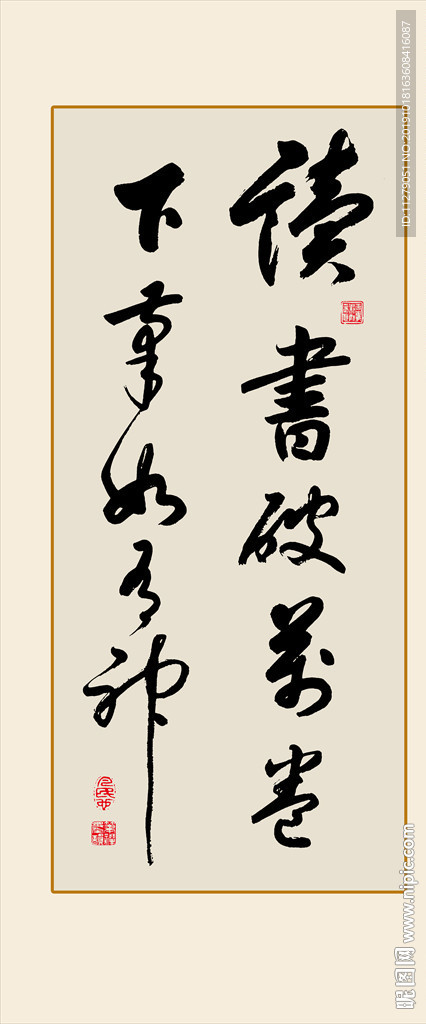 讀書破萬卷
下筆如有神
ID:11279051 NO:20191018163608416087
昵图网 www.nipic.com